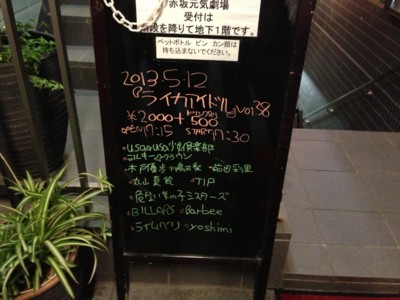 赤坂元気劇場
受付は
階段を降りて地下1階です。
ペットボトル ビン カン類は
持ち込まないでください。
2013.5.12
ライカアイドル vol.38
¥2000+ドリンク代500
OPEN 17:15 START 17:30
・usa☆usa少女倶楽部
・ミルキークラウン
・木戸優歩
・丸山夏鈴 ・TIP
・危ない女の子シスターズ
・BILLARS ・Barbee
・ライムベリー ・yoshimi